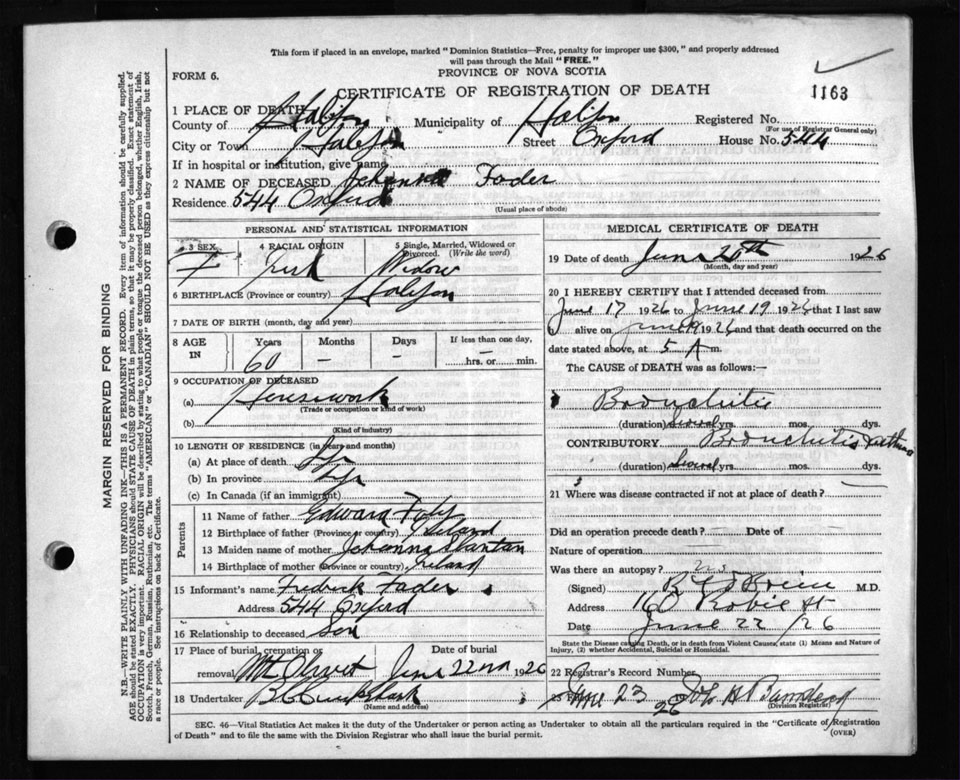 This form if placed in an envelope, marked "Dominion Statistics—Free, penalty for improper use $300," and properly addressed
will pass through the Mail "FREE."
PROVINCE OF NOVA SCOTIA
FORM 6.
CERTIFICATE OF REGISTRATION OF DEATH
1163
1 PLACE OF DEATH
County of Halifax Municipality of Halifax Registered No.
(For use of Registrar General only)
City or Town Halifax Street Oxford House No. 544
If in hospital or institution, give name
2 NAME OF DECEASED Johanna Fader
Residence 544 Oxford
(Usual place of abode)
PERSONAL AND STATISTICAL INFORMATION
3 SEX 4 RACIAL ORIGIN 5 Single, Married, Widowed or
Divorced. (Write the word)
F Irish Widow
6 BIRTHPLACE (Province or country) Halifax
7 DATE OF BIRTH (month, day and year)
8 AGE IN Years Months Days If less than one day,
60 — — hrs. or min.
9 OCCUPATION OF DECEASED
(a) Housework
(Trade or occupation or kind of work)
(b)
(Kind of industry)
10 LENGTH OF RESIDENCE (in years and months)
(a) At place of death Life
(b) In province Life
(c) In Canada (if an immigrant)
Parents
11 Name of father Edward
12 Birthplace of father (Province or country) Ireland
13 Maiden name of mother Johanna
14 Birthplace of mother (Province or country) Ireland
15 Informant's name Fredrick Fader
Address 544 Oxford
16 Relationship to deceased Son
17 Place of burial, cremation or Date of burial
removal Mt Olivet June 22nd 1926
18 Undertaker
(Name and address)
MEDICAL CERTIFICATE OF DEATH
19 Date of death June 20th 1926
(Month, day and year)
20 I HEREBY CERTIFY that I attended deceased from
June 17 1926 to June 19 1926 that I last saw
alive on June 19 1926 and that death occurred on
date stated above, at 5 A m.
The CAUSE of DEATH was as follows:—
Bronchitis
(duration) several yrs. mos. dys.
CONTRIBUTORY Bronchitis asthma
(duration) several yrs. mos. dys.
21 Where was disease contracted if not at place of death?
Did an operation precede death? Date of
Nature of operation
Was there an autopsy? no
(Signed) M.D.
Address 160 Robie St
Date June 22 /26
State the Disease causing Death, or in death from Violent Causes, state (1) Means and Nature of
Injury, (2) whether Accidental, Suicidal or Homicidal.
22 Registrar's Record Number
June 23 26
(Division Registrar)
SEC. 46—Vital Statistics Act makes it the duty of the Undertaker or person acting as Undertaker to obtain all the particulars required in the "Certificate of Registration
of Death" and to file the same with the Division Registrar who shall issue the burial permit.
(OVER)
MARGIN RESERVED FOR BINDING
N.B.—WRITE PLAINLY WITH UNFADING INK—THIS IS A PERMANENT RECORD. Every item of information should be carefully supplied.
AGE should be stated EXACTLY. PHYSICIANS should STATE CAUSE OF DEATH in plain terms, so that it may be properly classified. Exact statement of
OCCUPATION is very important. RACIAL ORIGIN will be described by stating to what people or tongue the deceased person belonged, whether English, Irish,
Scotch, French, German, Russian, Ruthenian, etc. The terms "AMERICAN" or "CANADIAN" SHOULD NOT BE USED as they express citizenship but not
a race or people. See instructions on back of Certificate.